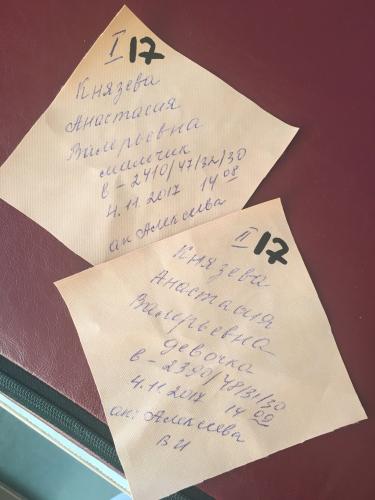 I 17
Князева
Анастасия
Валерьевна
мальчик
в - 2410/47/32/30
4.11.2017 14 08
ак Алексеева
II 17
Князева
Анастасия
Валерьевна
девочка
в - 2390/48/31/30
4.11.2017 14 09
ак. Алексеева
В И